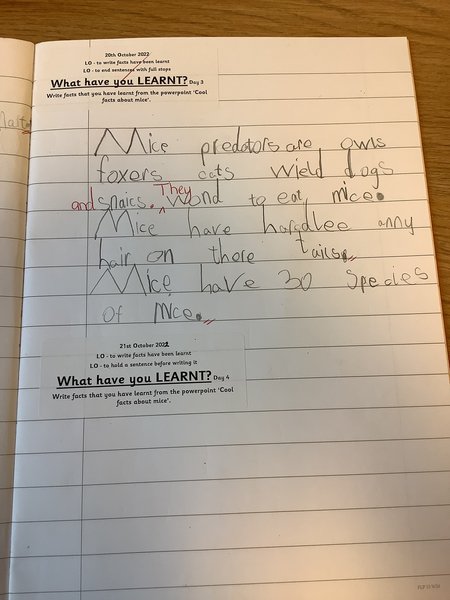 20th October 2022
LO - to write facts have been learnt
LO - to end sentences with full stops
What have you LEARNT? Day 3
Write facts that you have learnt from the powerpoint 'Cool
facts about mice'.
Mice predators are owls
foxers cats wield dogs
and snaics. They wond to eat mice.
Mice have hardlee anny
hair on there tails.
Mice have 30 species
of mice.
21st October 2022
LO - to write facts have been learnt
LO - to hold a sentence before writing it
What have you LEARNT? Day 4
Write facts that you have learnt from the powerpoint 'Cool
facts about mice'.